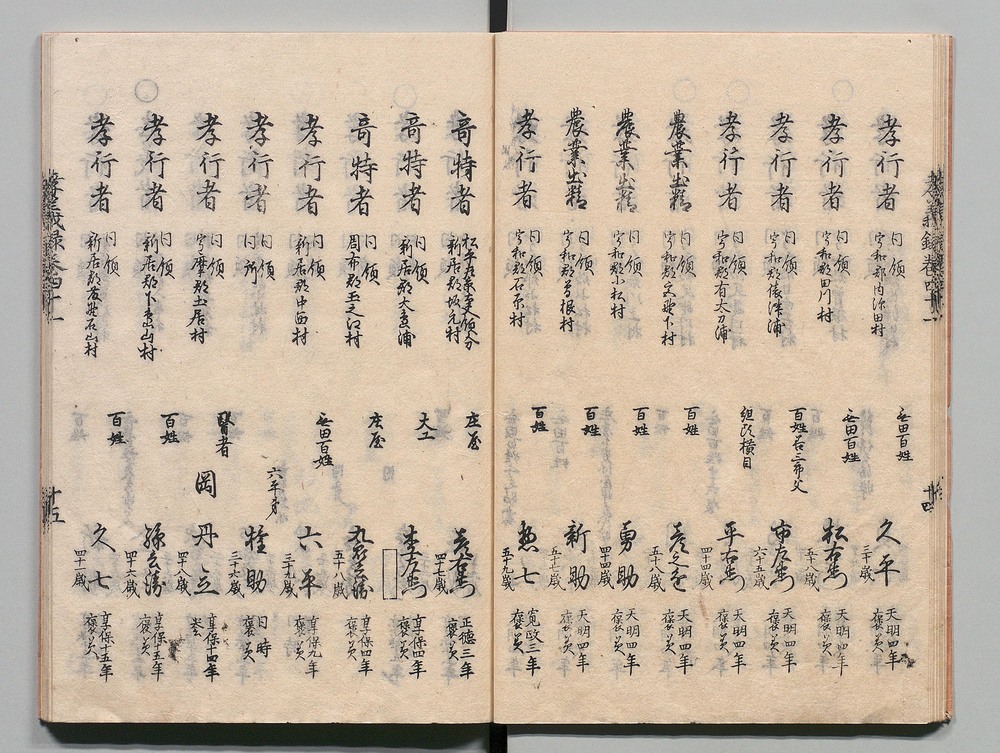 孝行者 同領 宇和郡内深田村 無田百姓 久平 三十歳 天明四年 褒美
孝行者 同領 宇和郡田川村 無田百姓 松右衛門 五十八歳 天明四年 褒美
孝行者 同領 宇和郡俵津浦 百姓呑三郎父 市左衛門 六十五歳 天明四年 褒美
孝行者 同領 宇和郡有太刀浦 組頭横目 平右衛門 四十四歳 天明四年 褒美
農業出精 同領 宇和郡宮野下村 百姓 五十八歳 天明四年 褒美
農業出精 同領 宇和郡小松村 百姓 勇助 四十四歳 天明四年 褒美
農業出精 同領 宇和郡曽根村 百姓 新助 五十七歳 天明四年 褒美
孝行者 同領 宇和郡石原村 百姓 惣七 五十九歳 寛政三年 褒美
奇特者 松平左京大夫領分 新居郡坂元村 庄屋 四十七歳 正徳三年 褒美
奇特者 同領 新居郡大島浦 大工 杢左衛門 享保四年 褒美
奇特者 同領 周布郡玉之江村 庄屋 五十八歳 享保四年 褒美
孝行者 同領 新居郡中西村 無田百姓 六平 三十九歳 享保九年 褒美
孝行者 同領 同所 六平弟 権助 三十六歳 同時 褒美
孝行者 同領 宇摩郡土居村 医者 岡丹立 四十八歳 享保十四年 褒美
孝行者 同領 新居郡下島山村 百姓 孫兵衛 四十六歳 享保十五年 褒美
孝行者 同領 新居郡萩野石山村 百姓 久七 四十一歳 享保十五年 褒美